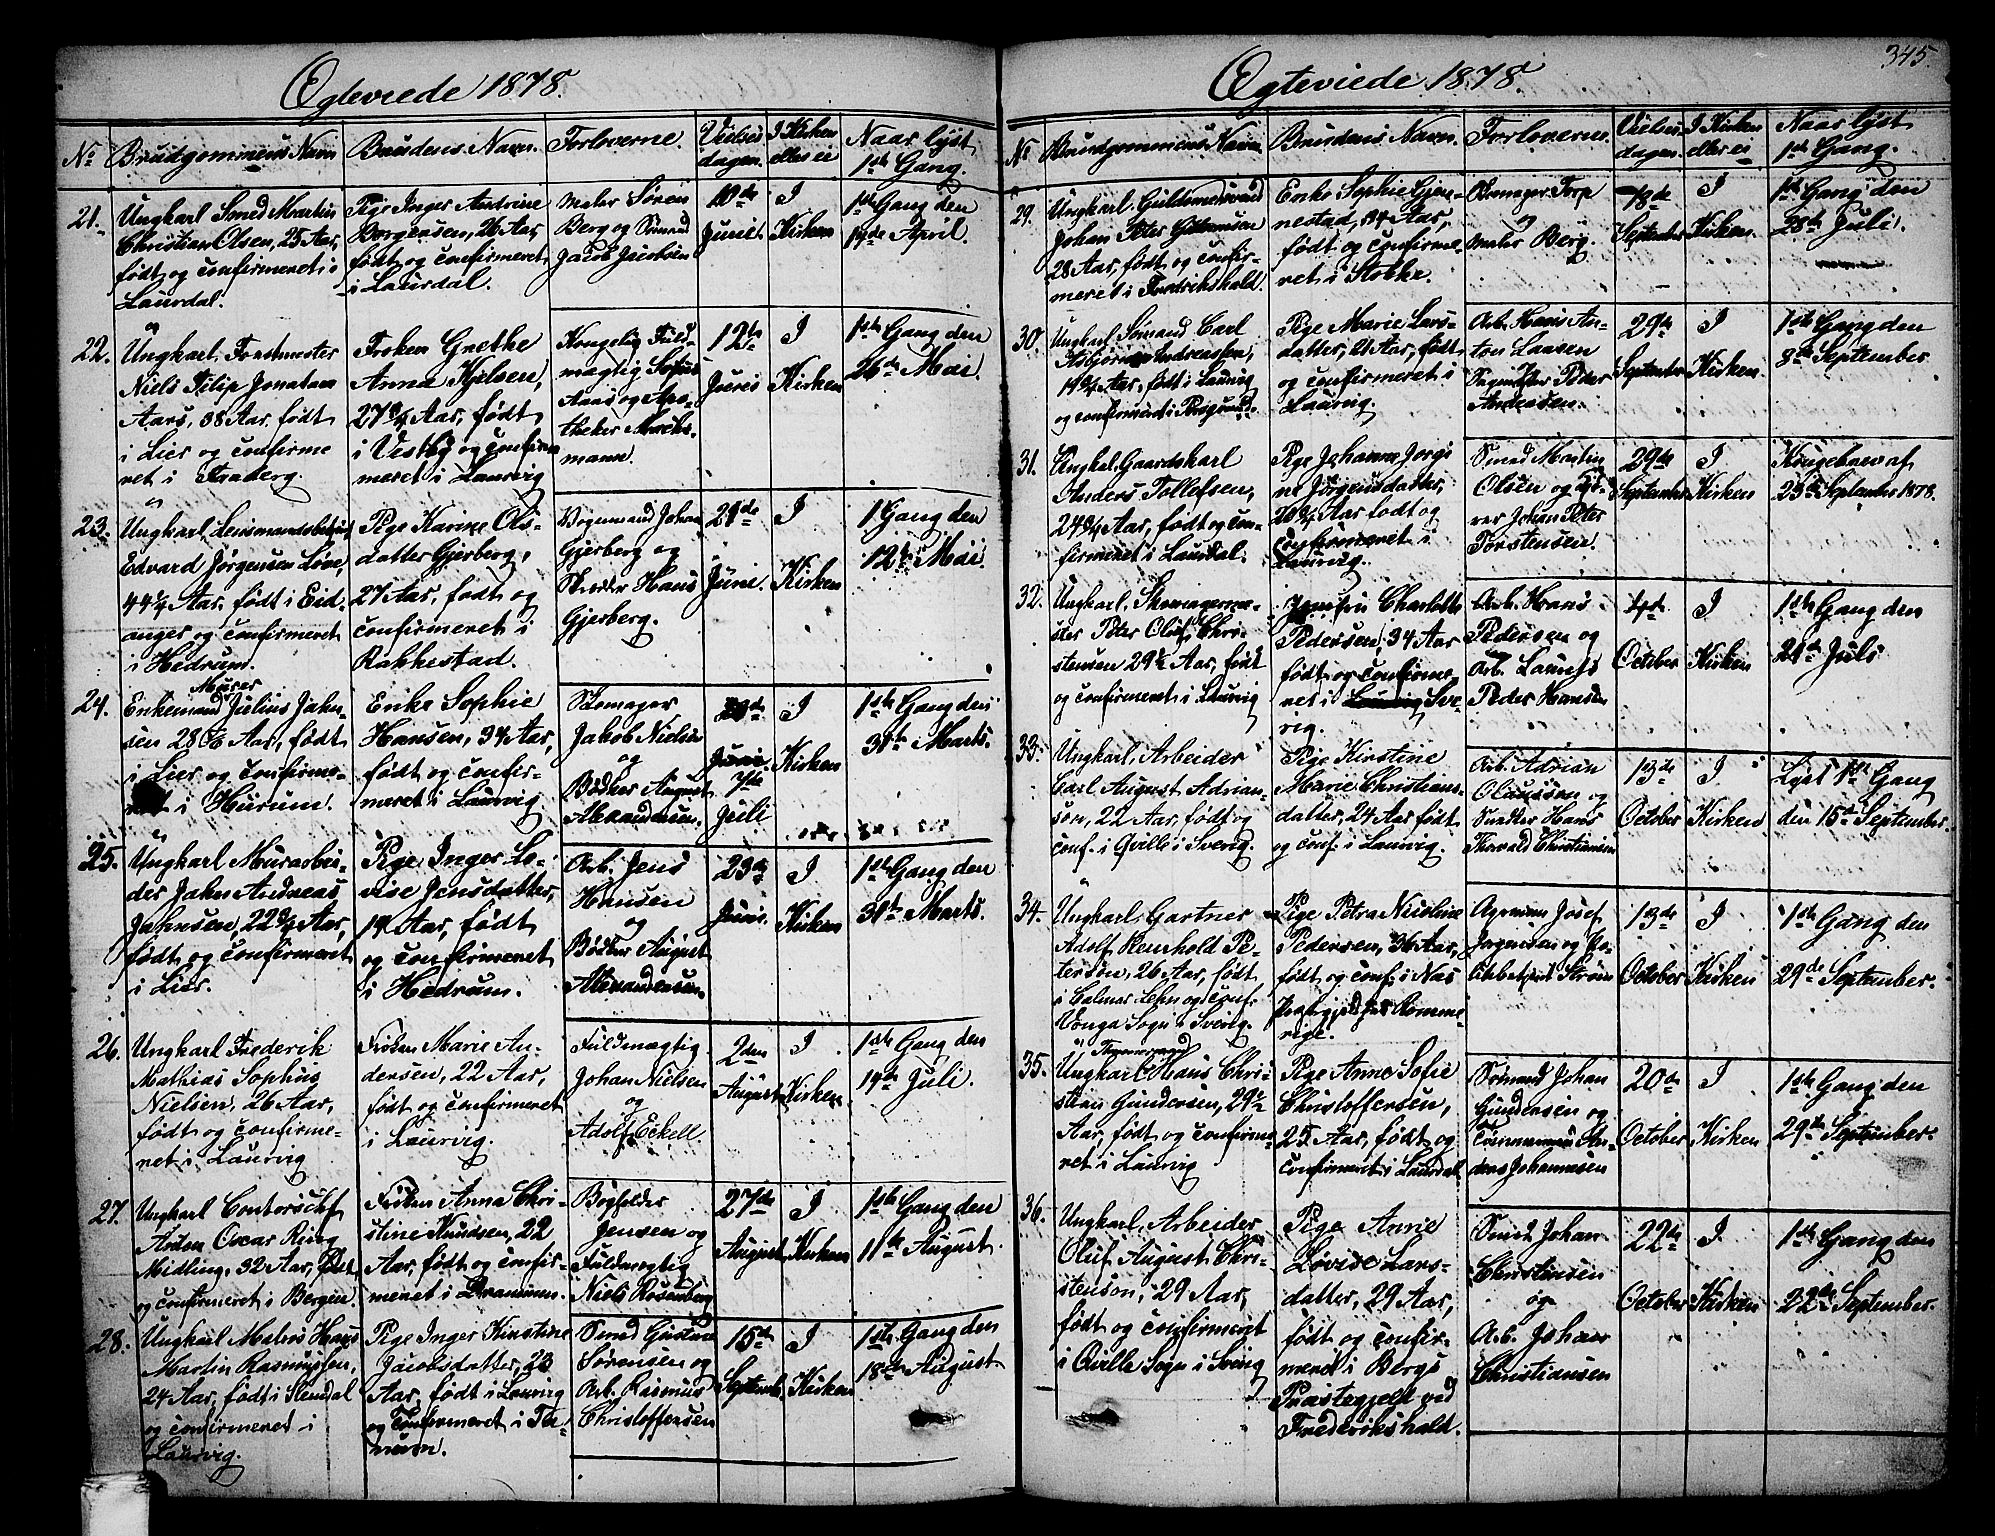 345
Ægteviede 1878.
No
Brudgommens Navn
Brudens Navn.
Forloverne.
Vielses
dagen.
I Kirken
eller ei
Naar lyst
1ste Gang.
21.
Ungkarl Smed Martin
Christian Olsen, 25 Aar,
født og confirmeret i
Laurdal.
Pige Inger Andrine
Borgersen, 26 Aar,
født og confirmeret
i Laurdal.
Maler Søren
Berg og Sømand
Jacob Jacobsen
10de
Juni
I
Kirken
1ste Gang den
14de April.
22.
Ungkarl Forstmester
Niels Filip Jonatam
Aars, 38 Aar, født
i Lier og confirme
ret i
Frøken Grethe
Anna Kjelsen,
27 3/4 Aar, født
i Vestby og confir
meret i Laurvig
Kongelig Fuld-
mægtig Sofus
Aars og Apo-
theker
mann.
12te
Juni
I
Kirken
1ste Gang den
26de Mai.
23.
Ungkarl Lensmandsbetjent
Edvard Jørgensen Løve,
44 1/4 Aar, født i Eid-
anger og confirmeret
i Hedrum.
Pige Karine Ols-
datter Gjerberg,
27 Aar, født og
confirmeret i
Rakkestad.
Vognmand Johan
Gjerberg og
Skræder Hans
Gjerberg.
21de
Juni.
I
Kirken
1 Gang den
12te Mai.
24.
Enkemand Murer Julius Jahn-
sen 28 Aar, født
i Lier og confirme-
ret i Hurum.
Enke Sophie
Hansen, 34 Aar,
født og confir-
meret i Laurvig
Skomager
Jakob Nielsen
og
Bødker August
Alexandersen.
Juni
7de
Juli
I
Kirken
1ste Gang den
31te Marts.
25.
Ungkarl Murarbei-
der Jahn Andreas
Jahnsen, 22 3/4 Aar,
født og confirmeret
i Lier.
Pige Inger Lo-
vise Jensdatter,
19 Aar, født
og confirmeret
i Hedrum.
Arb. Jens
Hansen
og
Bødker August
Alexandersen.
23de
Juni.
I
Kirken
1ste Gang den
31te Marts.
26.
Ungkarl Frederik
Mathias Sophus
Nielsen, 26 Aar,
født og confirme-
ret i Laurvig
Frøken Marie An-
dersen, 22 Aar,
født og confirmeret
i Laurvig.
Fuldmægtig
Johan Nielsen
og
Adolf Eckell.
2den
August
I
Kirken
1ste Gang den
14de Juli.
27.
Ungkarl Contorschef
Anton Oscar Ring
Midling, 32 Aar, født
og confirmeret i Bergen.
Frøken Anna Chri-
stine Knudsen, 22
Aar, født og confir-
meret i Drammen.
Bogholder
Jensen og
Fuldmægtig
Niels Rosenberg
27de
August
I
Kirken
1ste Gang den
11te August.
28.
Ungkarl Maler Hans
Martin Rasmussen,
24 Aar, født i
og confirmeret i
Laurvig.
Pige Inger Kirstine
Jacobsdatter, 23
Aar, født i Laurvig
og confirmeret i Tje-
mum.
Smed Gustav
Sørensen og
Arb. Rasmus
Christoffersen
15de
Septemb.
I
Kirken
1ste Gang den
18de August.
Ægteviede 1878.
No
Brudgommens Navn
Brudens Navn.
Forloverne.
Vielses
dagen.
I Kirken
eller ei
Naar lyst
1ste Gang.
29.
Ungkarl, Guldsmedsvend
Johan Peter
28 Aar, født og confir-
meret i Fredrikshald.
Enke Sophie Gjen-
nestad, 34 Aar,
født og confirme-
ret i Stokke.
Skomager Torp
og
Maler Berg.
18de
September
I
Kirken.
1ste Gang den
28de Juli.
30.
Ungkarl Sømand Carl
Asbjørn Andreassen,
19 3/4 Aar, født i Laurvig
og confirmeret i Porsgrund.
Pige Marie Lars-
datter, 21 Aar, født
og confirmeret i
Laurvig.
Arb. Hans An-
ton Larsen
og
Sagmester Peter
Andersen.
29de
September
I
Kirken.
1ste Gang den
8de September
31.
Ungkarl Gaardskarl
Anders Tollefsen,
24 3/4 Aar, født og con-
firmeret i Laurdal.
Pige Johanne Jorgi
ne Jørgensdatter,
20 3/4 Aar født og
confirmeret i
Laurvig.
Smed Martin
Olsen og
Johan Peter
Torstensen.
29de
September
I
Kirken
Kongebrev af
23de September 1878.
32.
Ungkarl, Skomagerme-
ster Peter Oluf Chri-
stensen 29 1/2 Aar, født
og confirmeret i Laurvig
Jomfru Charlotte
Pedersen, 34 Aar
født og confirme-
ret i Laurvig Sve-
rig.
Arb. Hans
Pedersen og
Arb. Laurits
Peder Hansen
4de
October
I
Kirken
1ste Gang den
21de Juli
33.
Ungkarl, Arbeider
Carl August Adrian-
son, 22 Aar, født og
conf. i Qville i Sverig.
Pige Kirstine
Marie Christians-
datter, 24 Aar født
og conf. i Laurvig.
Arb. Adrian
Olausson og
Snedker Hans
Thorvald Christiansen
13de
October
I
Kirken
Lyst 1ste Gang
den 15de September.
34.
Ungkarl, Gartner
Adolf Reinhold Pe-
terson, 26 Aar, født
i Calmar Lehn og conf.
Vonga Sogn i Sverig.
Pige Petra Nicoline
Pedersen, 36 Aar,
født og conf. i Næs
Præstegjeld paa Romme-
rige.
Agronom Josef
Jørgensen og Po-
litibetjent Strøm
13de
October
I
Kirken
1ste Gang den
29de September.
35.
Ungkarl Tømmermand Hans Chri-
stian Gundersen, 29 1/2
Aar, født og confirme-
ret i Laurvig
Pige Anne Sofie
Christoffersen,
25 Aar, født og
confirmeret i Laurdal
Sømand Johan
Gundersen og
Tømmermand An-
dreas Johannesen
20de
October
I
Kirken
1ste Gang den
29de September.
36.
Ungkarl, Arbeider
Oluf August Chri-
stenson, 29 Aar,
født og confirmeret
i Qville Sogn i Sverig
Pige Anne
Lovise Lars-
datter, 29 Aar,
født og confir-
meret i Bergs
Præstegjeld ved
Frederikshald.
Smed Johan
Christensen
og
Arb. Johan
Christiansen
22de
October
I
Kirken
1ste Gang den
22de September.